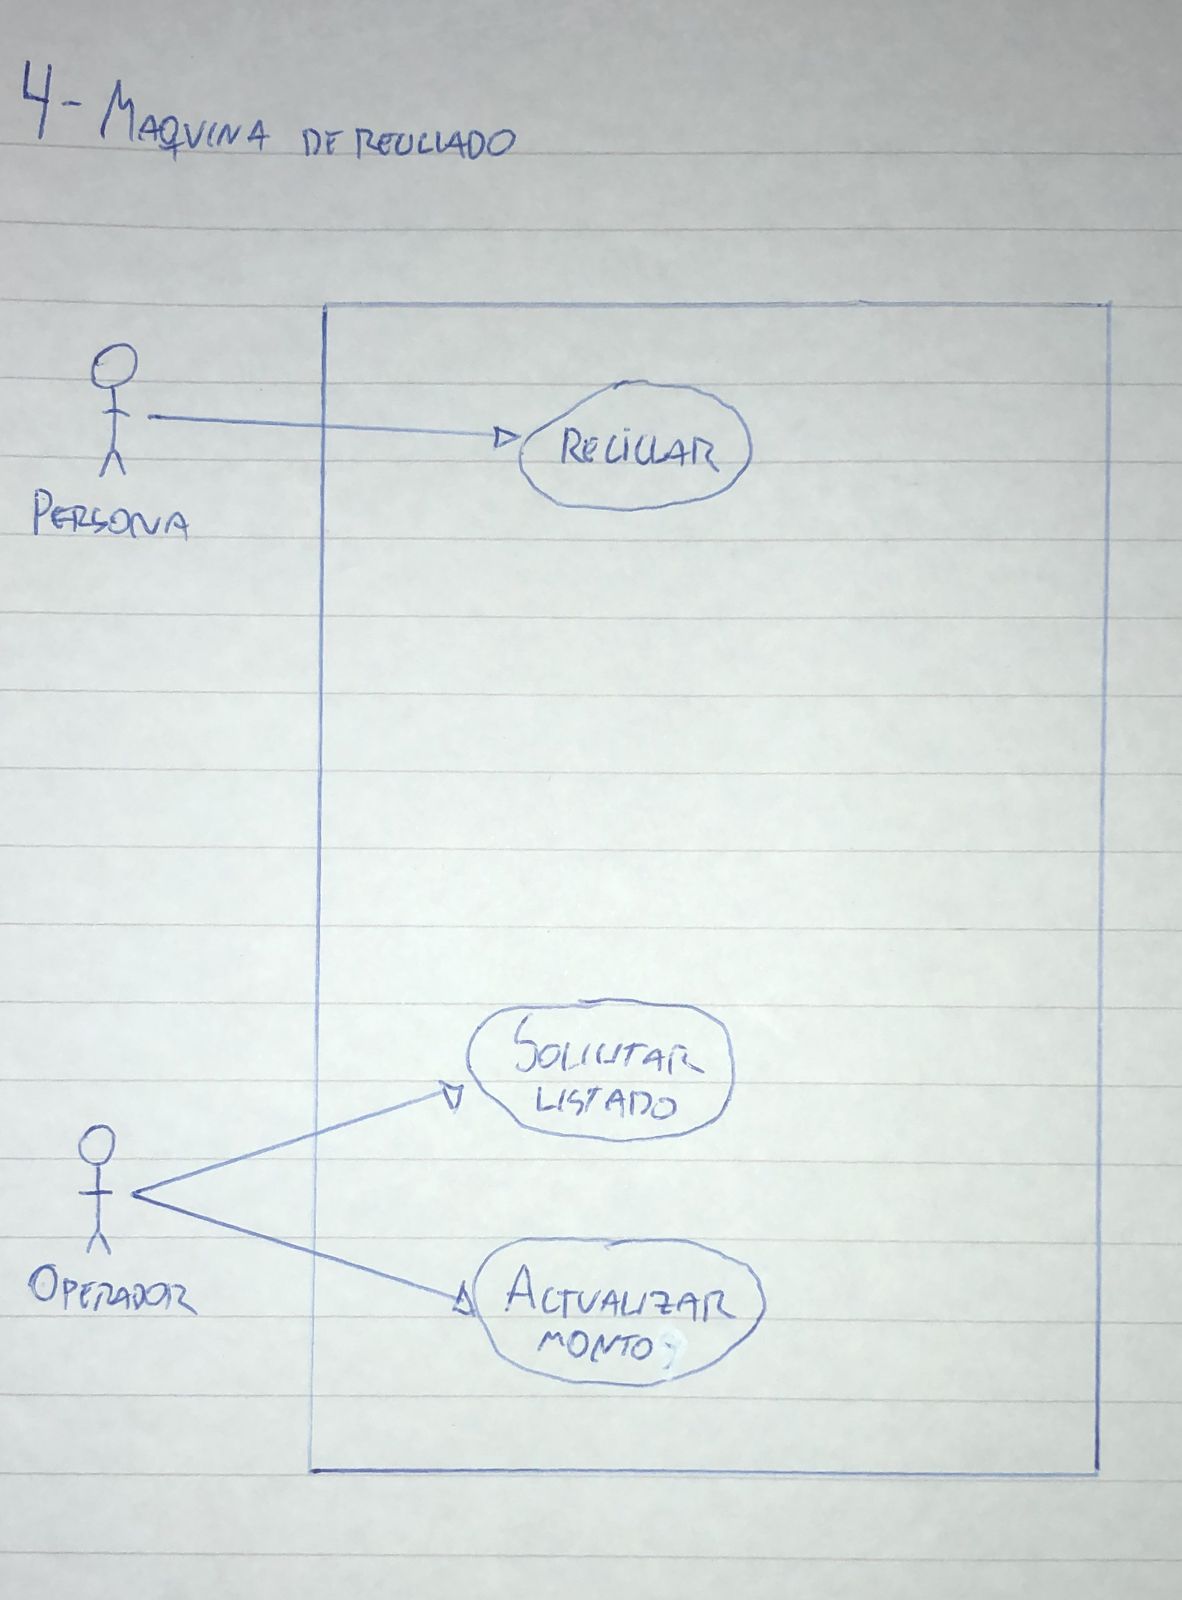 4- MAQUINA DE RECICLADO
RECICLAR
PERSONA
SOLICITAR
LISTADO
OPERADOR
ACTUALIZAR
MONTO